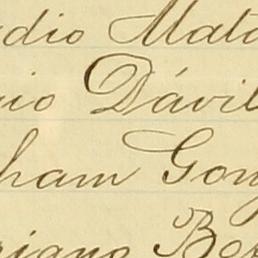 dio Mata
io Dávil
ham Gonz
riano Bo